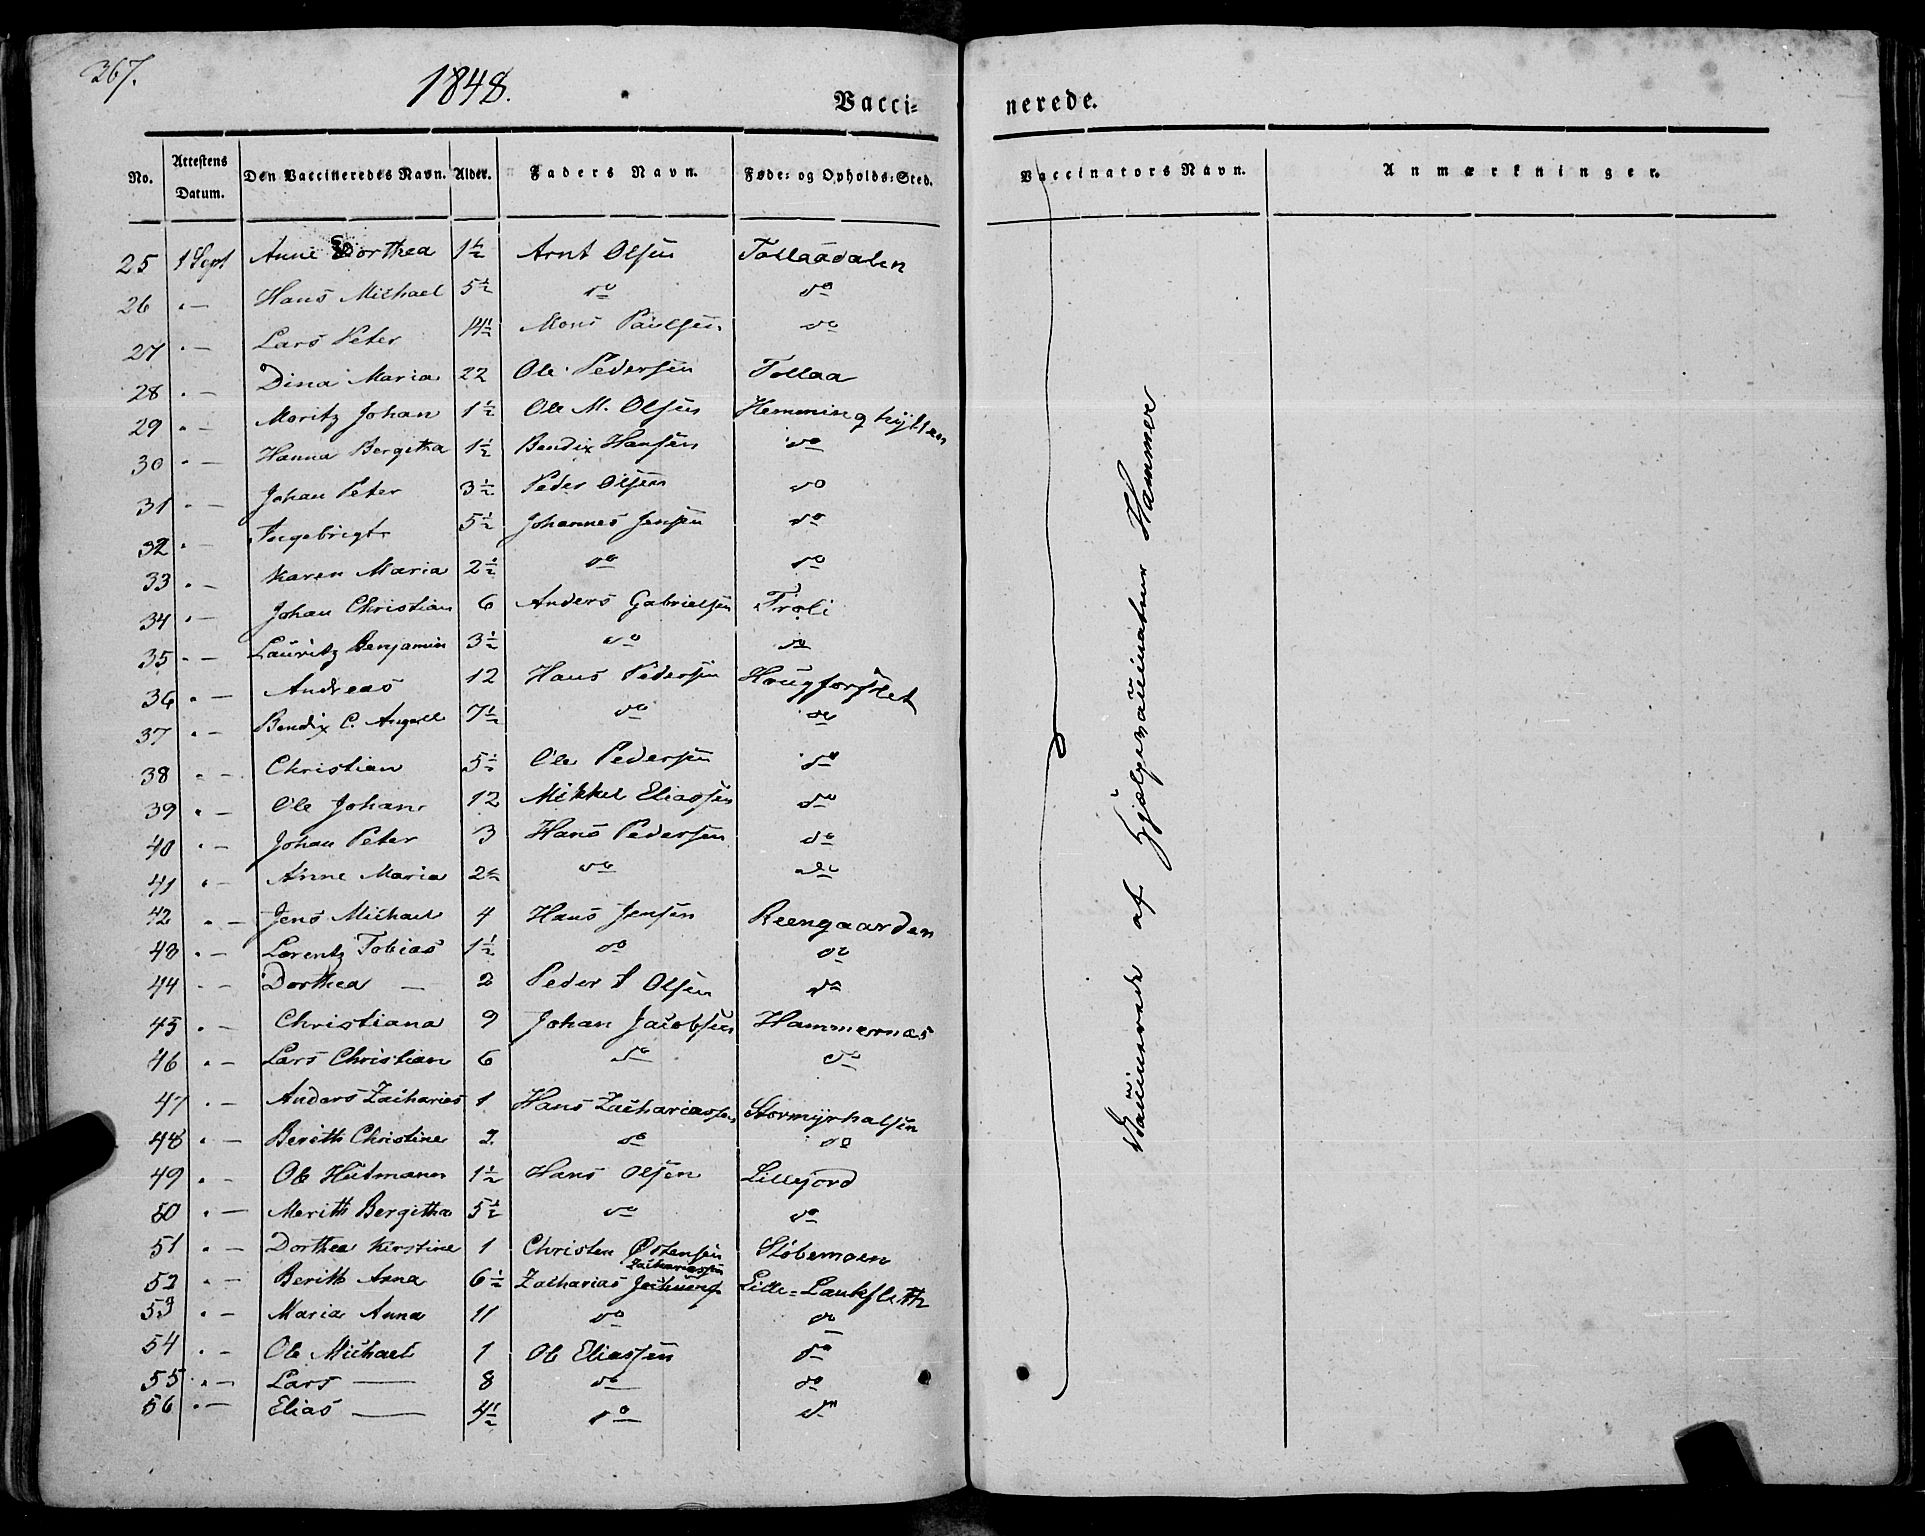 367.
1848.
Vacci- nerede.
No. Attestens Datum. Den Vaccineredes Navn. Alder. Faders Navn. Føde- og Opholds-Sted. Vaccinators Navn. Anmærkninger.
25 1 Sept Anne Dorthea 1½ Arnt Olsen Tollaadalen
26 " — Hans Michael 5½ do do
27 " — Lars Peter 4½ Mons Paulsen do
28 " — Dina Maria 22 Ole Pedersen Tollaa
29 " — Moritz Johan 1½ Ole M. Olsen Hemminghytten
30 " — Hanna Bergitha 1½ Bendix Hansen do
31 " — Johan Peter 3½ Peder Olsen do
32 " — Ingebrigt 5½ Johannes Jensen do
33 " — Karen Maria 2½ do do
34 " — Johan Christian 6 Anders Gabrielsen Troli
35 " — Lauritz Benjamin 3½ do do
36 " — Andreas 12 Hans Pedersen Hougforslet
37 " — Bendix C. Angell 7½ do do
38 " — Christian 5½ Ole Pedersen do
39 " — Ole Johan 12 Mikkel Eliassen do
40 " — Johan Peter 3 Hans Pedersen do
41 " — Anne Maria 2½ do do
42 " — Jens Michael 4 Hans Jensen Reengaarden
43 " — Lorentz Tobias 1½ do do
44 " — Dorthea — 2 Peder Olsen do
45 " — Christiana 9 Johan Jacobsen Hammernæs
46 " — Lars Christian 6 do do
47 " — Anders Zacharias 1 Hans Zachariassen Stormyrhalsen
48 " — Berith Christine 2 do do
49 " — Ole Hutmann 1½ Hans Olsen Lillejord
50 " — Merith Bergitha 5½ do do
51 " — Dorthea Kirstine 1 Christen Østensen Støbemoen
52 " — Berith Anna 6½ Zacharias Zachariassen Lille-Lankslette
53 " — Maria Anna 11 do do
54 " — Ole Michael 1 Ole Eliassen do
55 " — Lars — 8 do do
56 " — Elias — 4½ do do
Vaccinerede af Hjælpevaccinateur Hammer